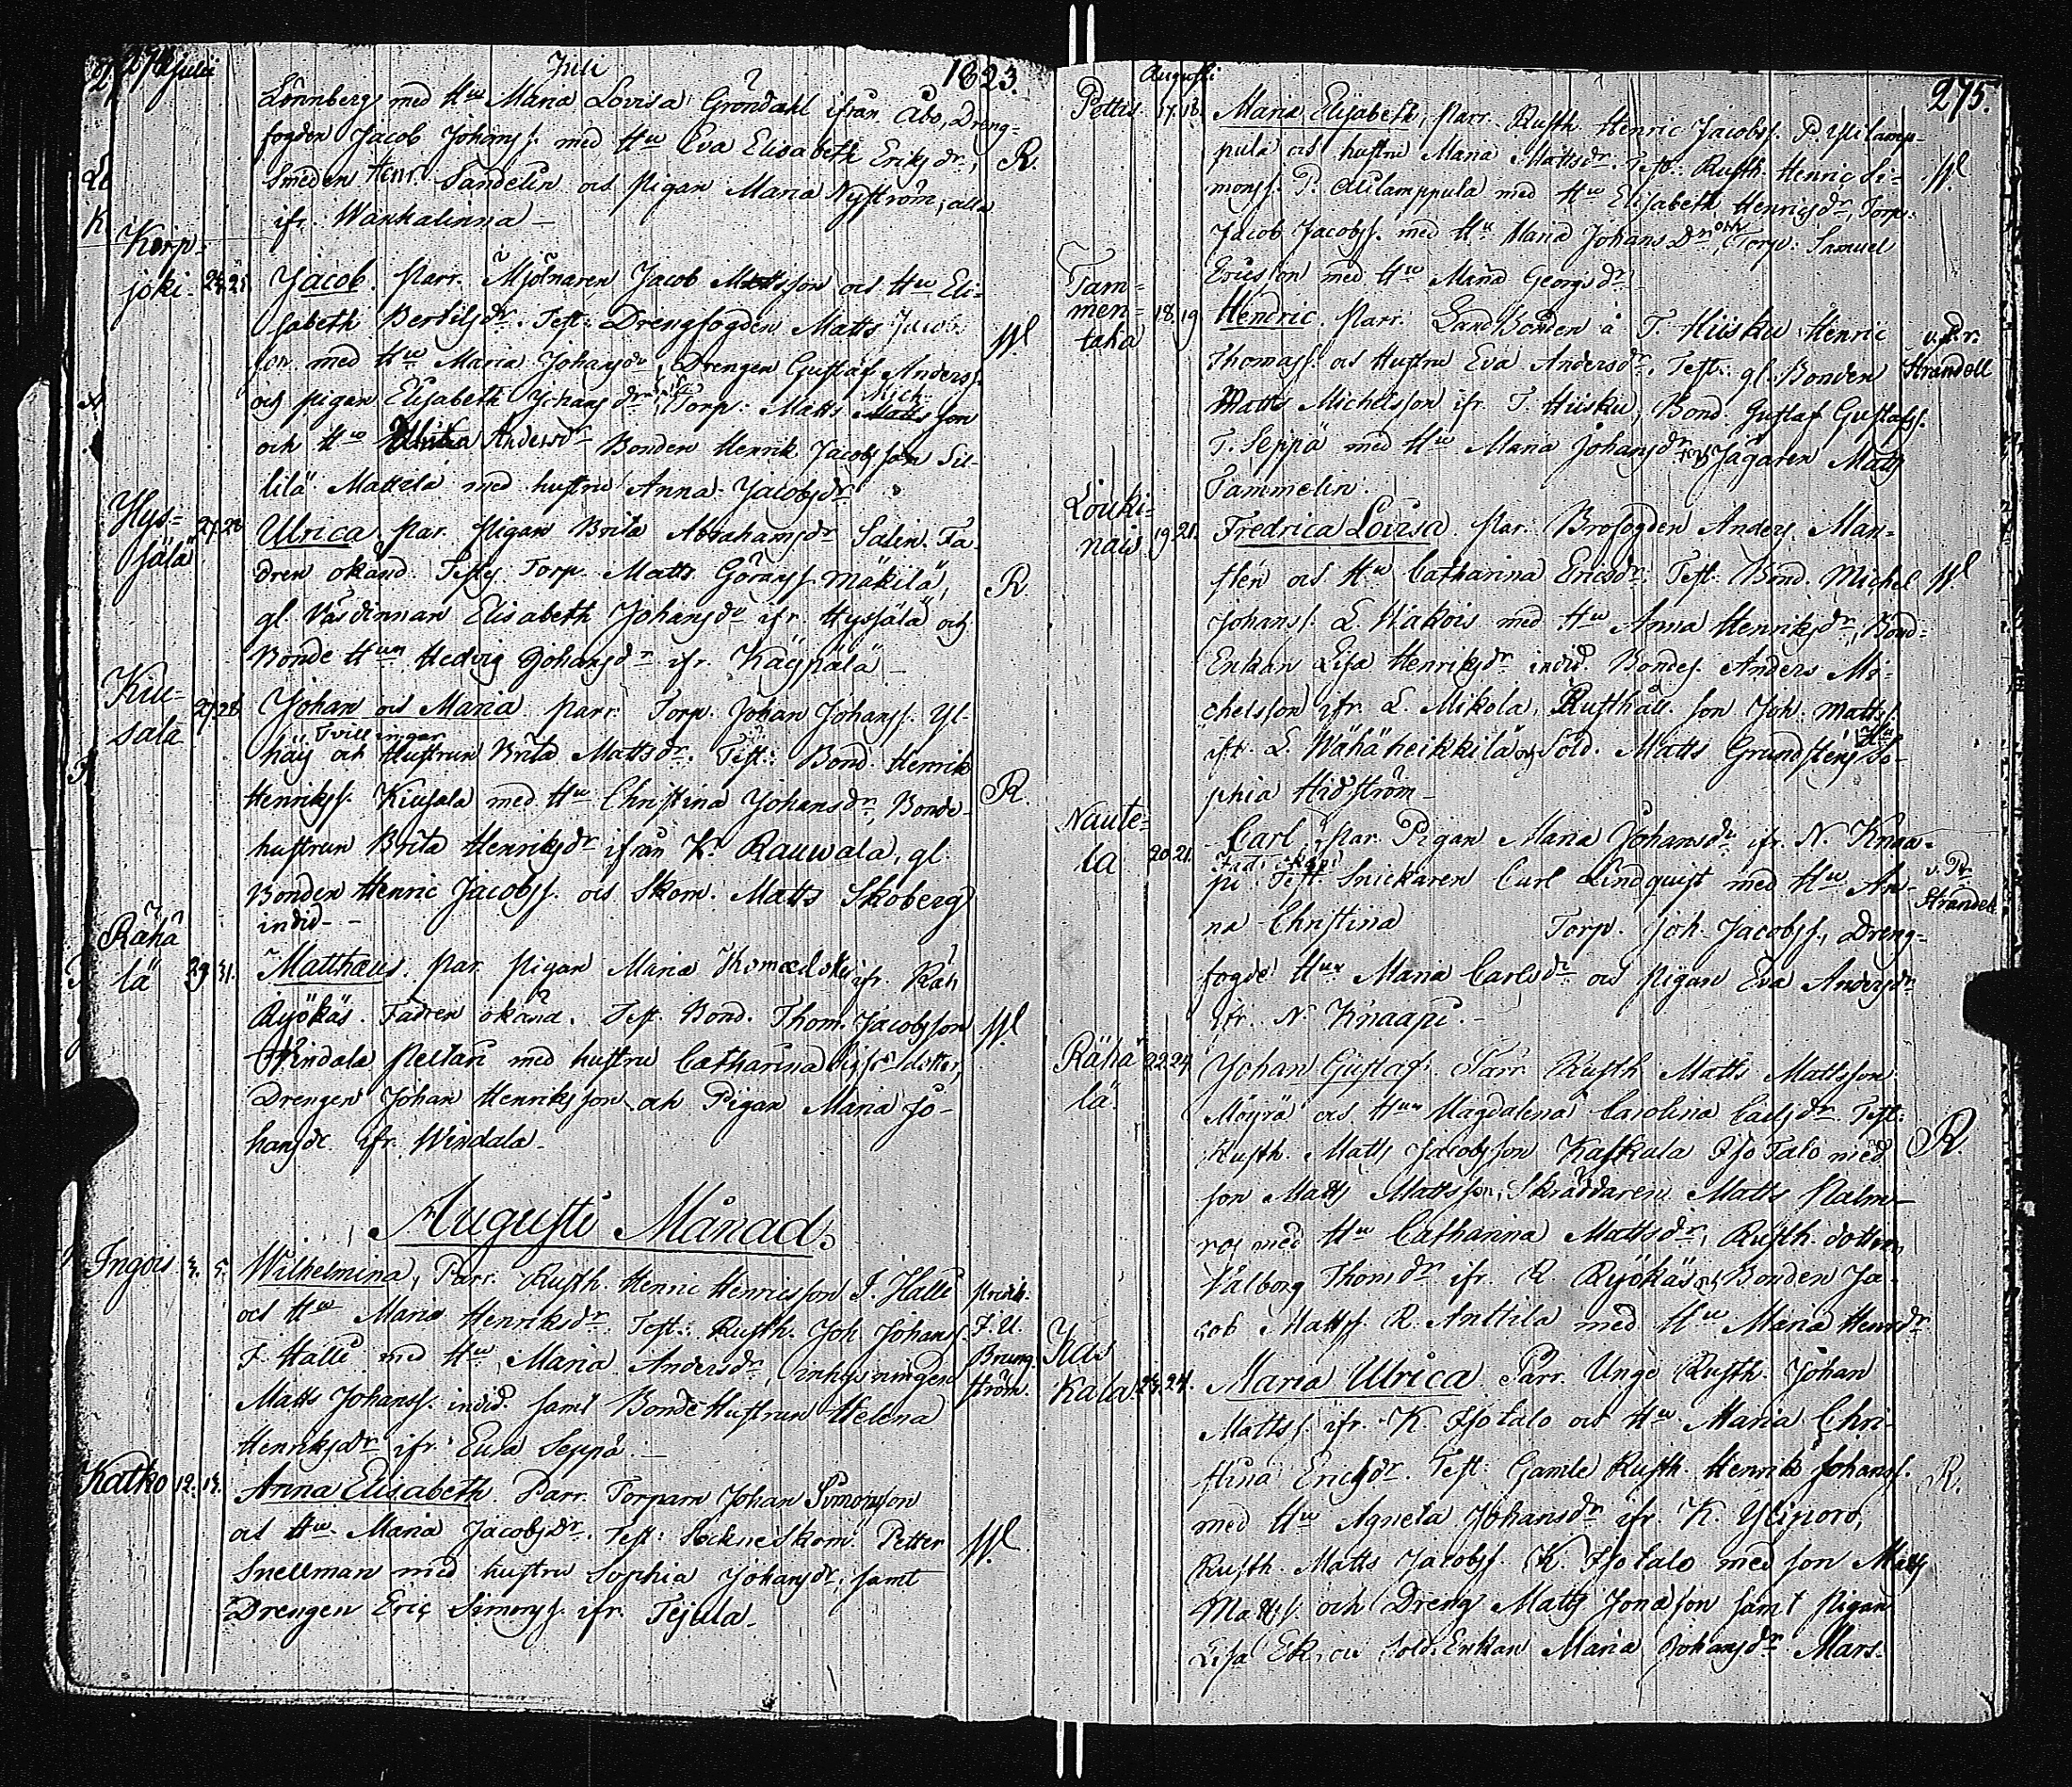 Juli 1823.
Lönnberg med Hu Maria Lovisa Gröndahl ifrån Åbo, Dreng-
fogden Jacob Johanss. med Hu Eva Elisabeth Eriksdr, R.
Smeden Henr. Sandelin och pigan Maria Nyström, alla
ifr. Wankalinna
Karp-
joki. Jacob. Parr. Mjölnaren Jacob Mattsson och Hu Eli-
sabeth Bertilsdr. Test: Drengfogden Matts Jacobs
son med Hu Maria Johansdr, Drengen Gustaf Anderss.
och pigan Elisabeth Johansdr, Torp. Matts Mich. Mattsson
och Hu Andersdr Bonden Henrik Jacobsson Sil-
lilä Mattela med hustru Anna Jacobsdr
Hys-
sälä 27. 28 Ulrica par. pigan Brita Abrahamsdr Salin. Fa-
dren okänd. Test. Torp. Matts Göranss. Mäkilä, R
gl. Värdinnan Elisabeth Johansdr ifr. Hyssälä och
Bonde Hun Hedvig Johansdr ifr. Käyppälä
Kiu-
sala 27. 28 Johan och Maria parr. Torp. Johan Johanss. Yl-
Tvillingar
häis och Hustrun Brita Mattsdr. Test: Bond. Henrik
Henrikss. Kiusala med Hu Christina Johansdr, Bonde- R.
hustrun Brita Henriksdr ifrån K. Rauwala, gl.
Bonden Henric Jacobss. och Skom. Matts Skoberg
indid.
Rähä
lä 29 31. Matthæus. par. pigan Maria ifr. Räh
Ryökäs. Fadren okänd. Test. Bond. Thom. Jacobsson
Windala Peltari med hustru Catharina
Drengen Johan Henriksson och Pigan Maria Jo-
hansdr ifr. Windala
Augusti Månad.
Ingois 3. 5. Wilhelmina, Parr. Rusth. Henric Henricsson I. Halli Predik.
och Hu Maria Henriksdr. Test: Rusth. Joh. Johanss. F. U.
I. Halli med Hu Maria Andersdr, inhysningen Brung-
Matts Johanss. indid. samt Bonde Hustrun Helena ström.
Henriksdr ifr. Eura Seppä
Katko 12. 13. Anna Elisabeth. Parr. Torparn Johan Simonsson
och Hu. Maria Jacobsdr. Test: Sockneskom. Petter
Snellman med hustru Sophia Johansdr, samt
Drengen Eric Simonss. ifr. Tejula
Augusti 275.
Pettis 17. 18. Maria Elisabeth, Parr. Rusth. Henric Jacobss. P. Ylilamp-
pula och hustru Maria Mattsdr. Test: Rusth. Henric Si-
monss. P. Alilamppula med Hu Elisabeth Henricsdr, Torp.
Jacob Jacobss. med Hu Maria Johans Dr och Torp: Samuel
Ericsson med Hu Maria Georgsdr
Tam-
men-
taka 18. 19 Hendric. Parr. Landbonden å T. Hiisku Henric v.P.r.
Thomass. och Hustru Eva Andersdr. Test: gl. Bonden Strandell
Matts Michelsson ifr. T. Hiisku, Bond. Gustaf Gustafss.
T. Seppä med Hu Maria Johansdr Jägaren Matts
Tammelin.
Louki-
nais 19 21. Fredrica Lovisa. Par. Brofogden Anders Man-
sten och Hu Catharina Ericsdr. Test: Bond. Michel
Johanss. L. Wakois med Hu Anna Henriksdr, Bond-
Enkan Lisa Henriksdr indid. Bondes. Anders Mi-
chelsson ifr. L. Mikola, Rusthåll. son Joh. Mattss.
ifr. L. Wähäheikkilä och Sold. Matts Grundstens Hu So-
phia Hidström
Naute-
la 20. 21. Carl, par. Pigan Maria Johansdr ifr. N. Knaa-
pi. Test. Snickaren Carl Lindquist med Hu An- v. Pr.
na Christina Torp. Joh. Jacobss., Dreng- Strandell
fogde Hun Maria Carlsdr och pigan Eva Andersdr
ifr. N. Knaapi.
Rähä
lä. 22. 24. Johan Gustaf. Parr. Rusth Matts Mattsson
Möyrä och Hun Magdalena Carolina Carlsdr. Test:
Rusth. Matts Jacobsson Kaskala Iso Talo med R.
son Matts Mattsson, Skräddaren Matts Palm-
ros med Hu Catharina Mattsdr, Rusth. dottren
Valborg Thomsdr ifr. R Ryökäs och Bonden Ja-
cob Mattss. R. Anttila med Hu Maria Henrsdr
Kas
kala 24. Maria Ulrica Parr. Unge Rusth. Johan
Mattss. ifr. K. Isotalo och Hu Maria Chri-
stina Ericsdr. Test: Gamle Rusth. Henrik Johanss. R.
med Hu Agneta Johansdr ifr K. Yliporo,
Rusth. Matts Jacobss. K. Isotalo med son Matts
Mattss. och Dreng Matts Jonasson samt pigan
Lisa Ek, och Sold. Enkan Maria Johansdr Mars-